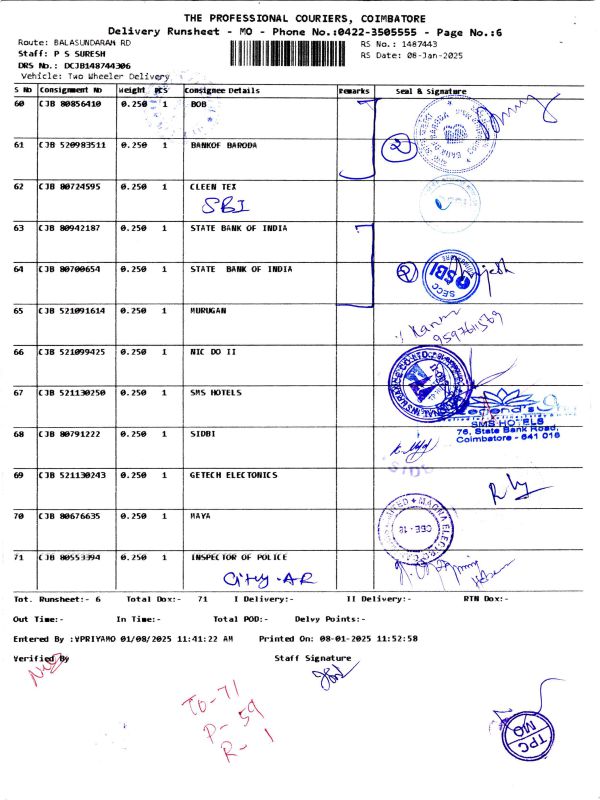 THE PROFESSIONAL COURIERS, COIMBATORE
Delivery Runsheet - MO - Phone No.:0422-3505555 - Page No.:6
Route: BALASUNDARAM RD
RS No.: 1487443
Staff: P S SURESH
RS Date: 08-Jan-2025
DRS No.: DCJB148744306
Vehicle: Two Wheeler Delivery
S No Consignment No Weight PCS Consignee Details Remarks Seal & Signature
60 CJB 80856410 0.250 1 BOB
61 CJB 520983511 0.250 1 BANKOF BARODA 2
62 CJB 80724595 0.250 1 CLEEN TEX
SBI
63 CJB 80942187 0.250 1 STATE BANK OF INDIA
64 CJB 80700654 0.250 1 STATE BANK OF INDIA 2 SBI
65 CJB 521091614 0.250 1 MURUGAN
9597611569
66 CJB 521099425 0.250 1 NIC DO II
67 CJB 521130250 0.250 1 SMS HOTELS
Legend's
SMS HOTELS
76, State Bank Road,
Coimbatore - 641 018
68 CJB 80791222 0.250 1 SIDBI
69 CJB 521130243 0.250 1 GETECH ELECTONICS
70 CJB 80676635 0.250 1 MAYA
71 CJB 80553394 0.250 1 INSPECTOR OF POLICE
City-AR
Tot. Runsheet:- 6 Total Dox:- 71 I Delivery:- II Delivery:- RTN Dox:-
Out Time:- In Time:- Total POD:- Delvy Points:-
Entered By :VPRIYAMO 01/08/2025 11:41:22 AM Printed On: 08-01-2025 11:52:58
Verified By Staff Signature
TO-71
P- 59
R- 1
TPC
MO